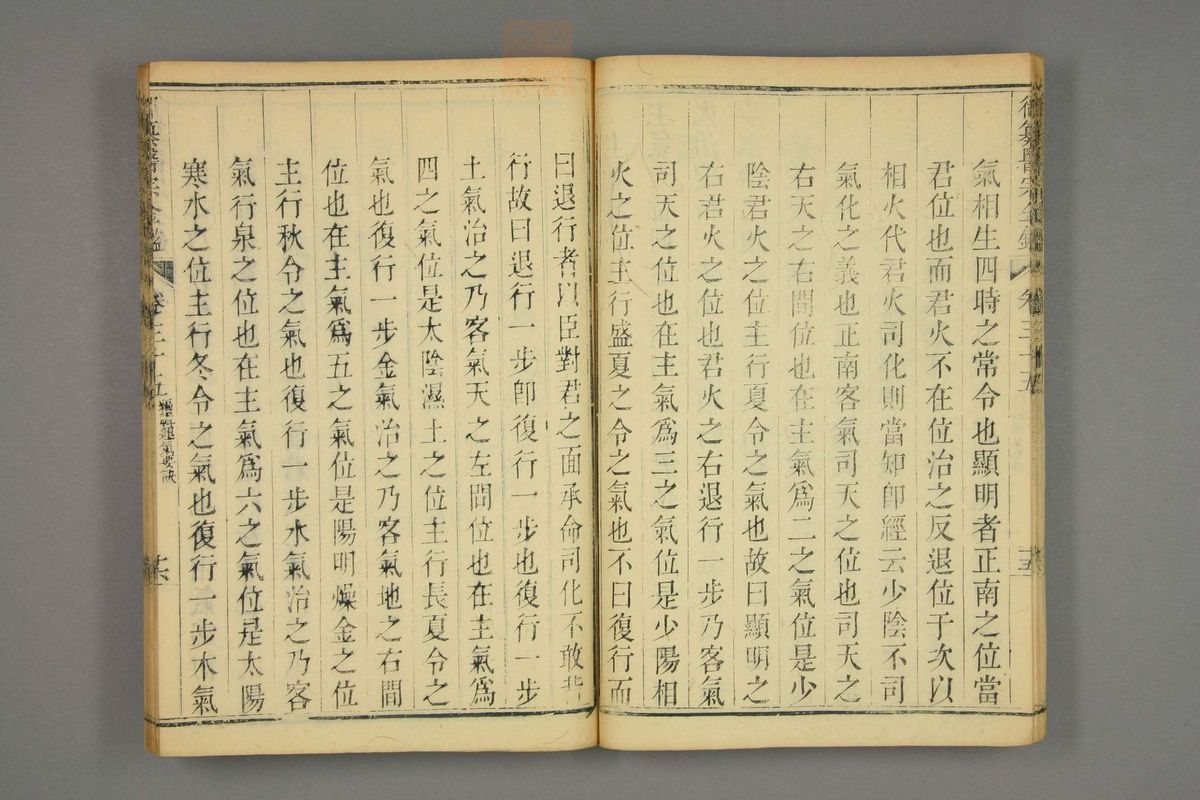 御纂醫宗金鑑 卷三十五
氣相生四時之常令也顯明者正南之位當
君位也而君火不在位治之反退位于次以
相火代君火司化則當知卽經云少陰不司
氣化之義也正南客氣司天之位也司天之
右天之右間位也在主氣爲二之氣位是少
陰君火之位主行夏令之氣也故曰顯明之
右君火之位也君火之右退行一步乃客氣
司天之位也在主氣爲三之氣位是少陽相
火之位主行盛夏之令之氣也不曰復行而
曰退行者以臣對君之面承命司化不敢背
行故曰退行一步卽復行一步也復行一步
土氣治之乃客氣天之左間位也在主氣爲
四之氣位是太陰濕土之位主行長夏令之
氣也復行一步金氣治之乃客氣地之右間
位也在主氣爲五之氣位是陽明燥金之位
主行秋令之氣也復行一步水氣治之乃客
氣行泉之位也在主氣爲六之氣位是太陽
寒水之位主行冬令之氣也復行一步木氣
卷三十五 運氣要訣